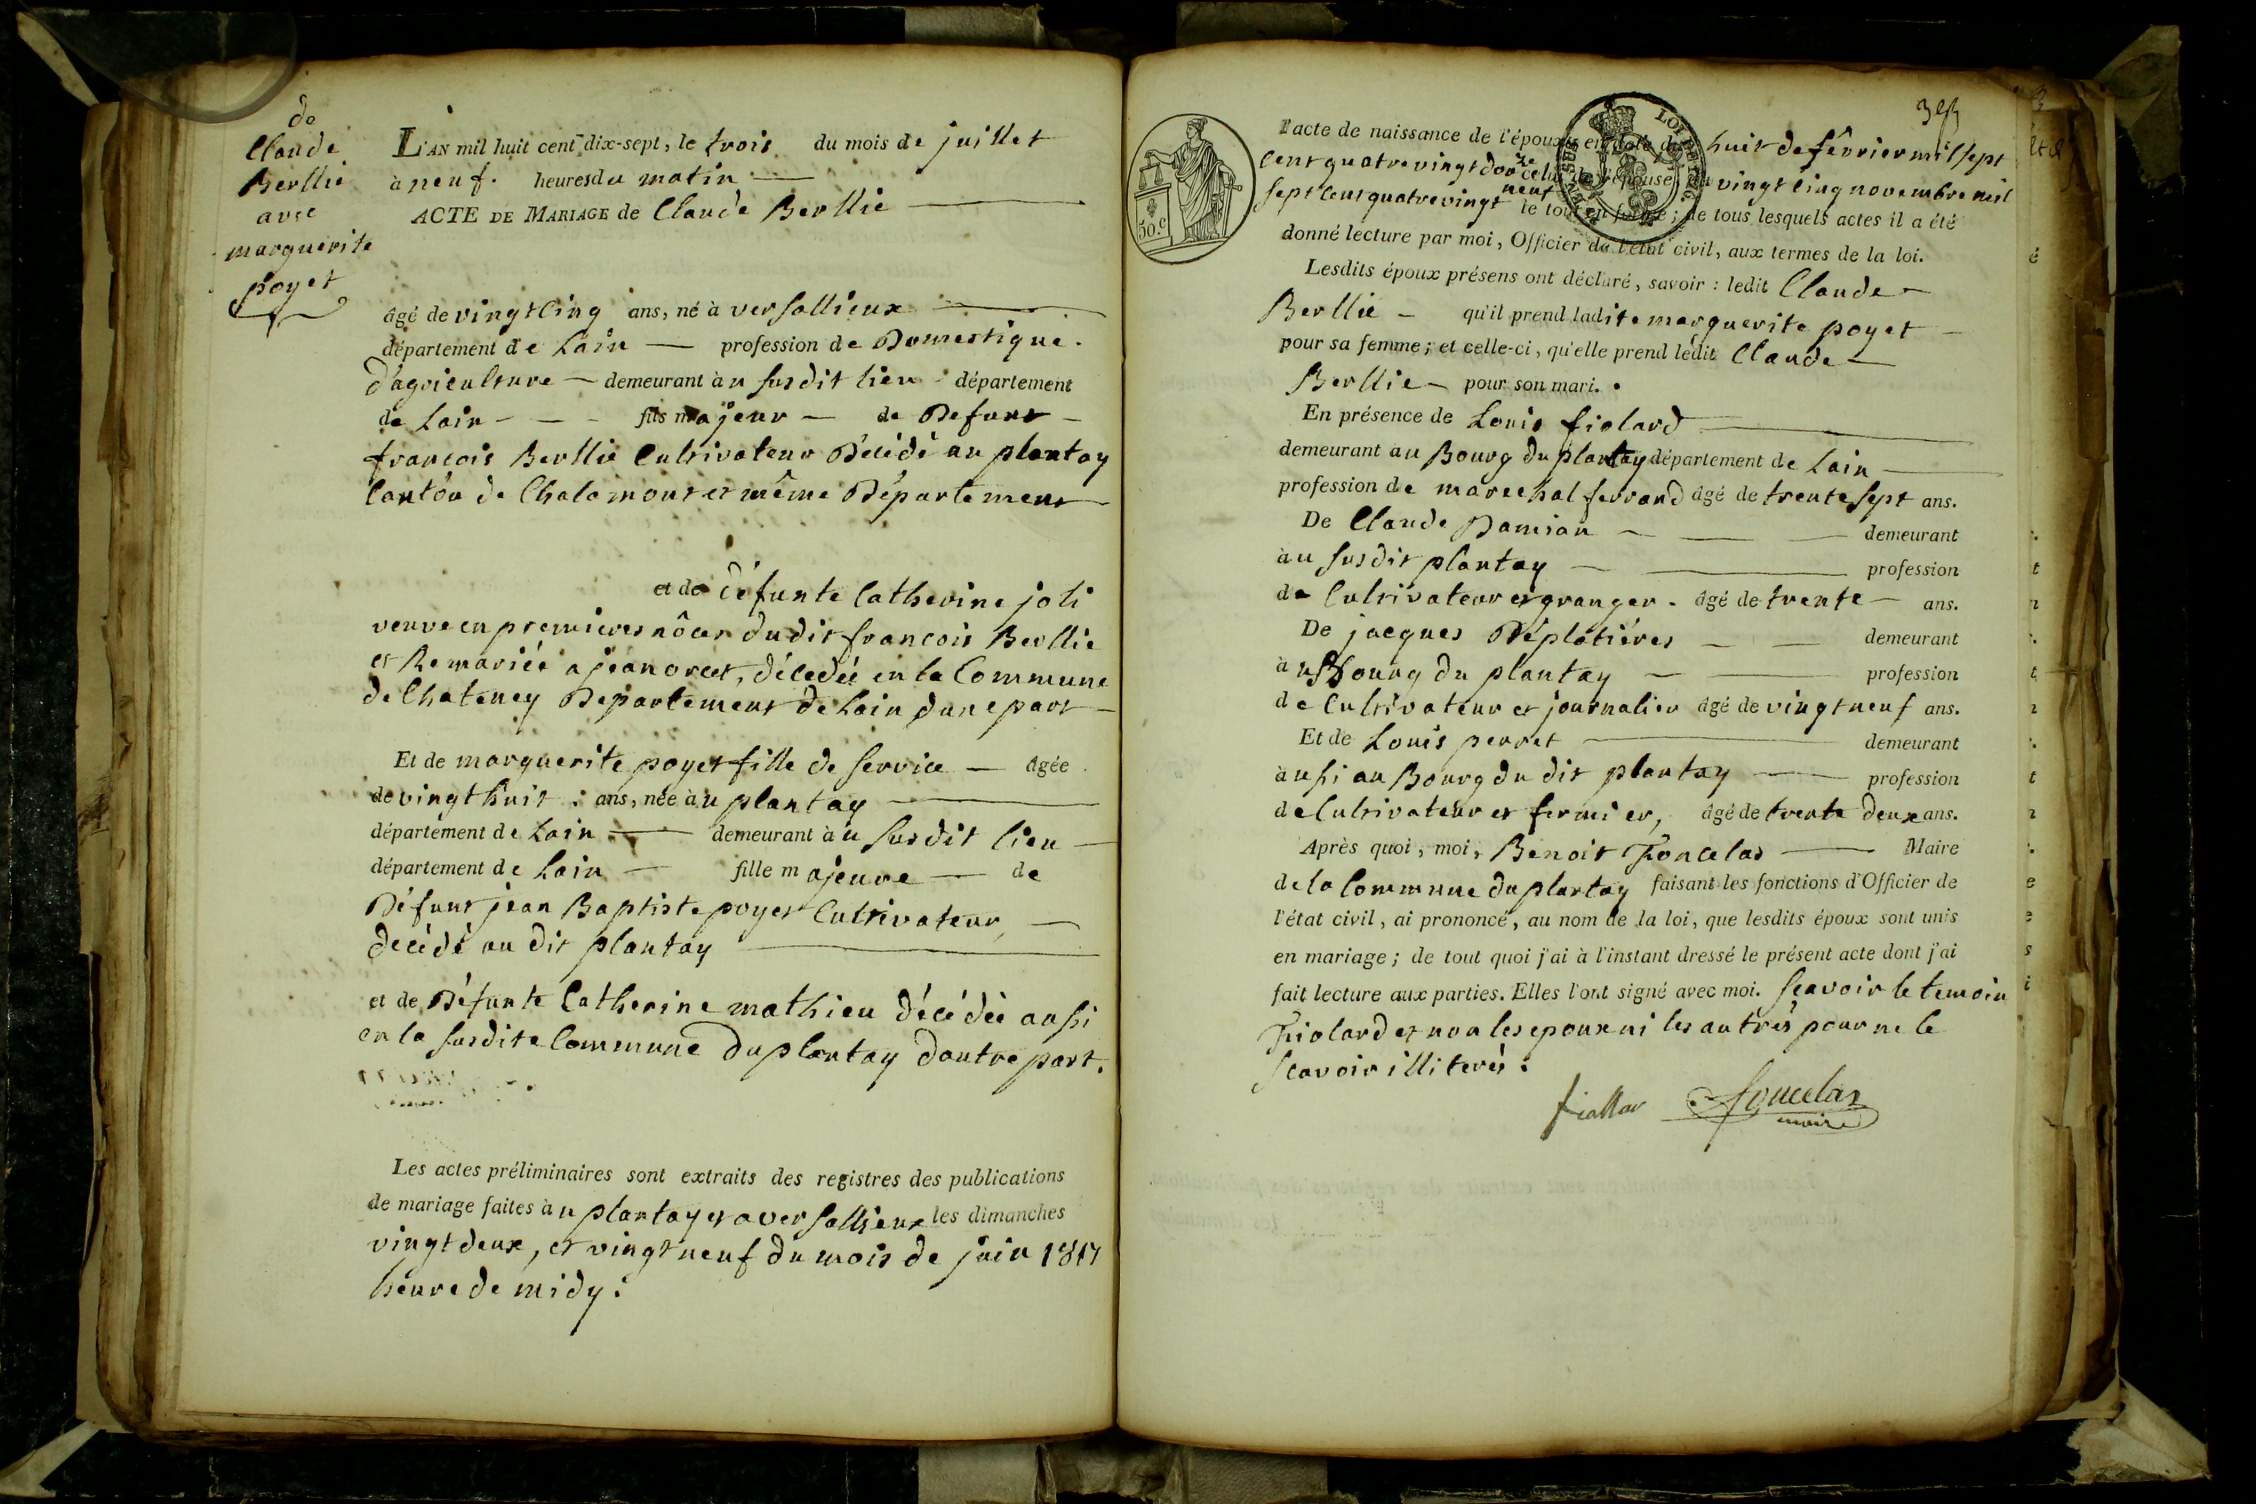 de
Claude
Berllie
avec
marguerite
poyet
L'AN mil huit cent dix-sept, le trois du mois de juillet
à neuf. heures du matin —
ACTE DE MARIAGE de Claude Berllie —
âgé de vingt cinq ans, né à versallieux —
département de Lain — profession de Domestique.
d'agriculture — demeurant au susdit lieu département
de Lain - - - fils majeur — de Defunt -
françois Berllie Cultivateur Décédé au plantay
Canton de Chalamont et même Département
et de défunte Catherine joli
veuve en premieres nôces du dit françois Berllie
et Remariée a jean orcet, décédée en la Commune
de Chateney Departement de Lain dune part —
Et de marguerite poyet fille de service — âgée
de vingt huit. ans, née au plantay —
département de Lain — demeurant au susdit lieu —
département de Lain — fille majeure — de
Défunt jean Baptiste poyet Cultivateur, —
decédé au dit plantay —
et de Défunte Catherine mathieu décédée aussi
en la susdite Commune du plantay dautre part.
Les actes préliminaires sont extraits des registres des publications
de mariage faites au plantay et a versallieux les dimanches
vingt deux, et vingt neuf du mois de juin 1817
heure de midy.
l'acte de naissance de l'époux, en date du huit de février mil sept
cent quatre vingt douze celui de l'épouse, du vingt cinq novembre mil
sept cent quatre vingt neuf le tout en forme; de tous lesquels actes il a été
donné lecture par moi, Officier de l'état civil, aux termes de la loi.
Lesdits époux présens ont déclaré, savoir : ledit Claude —
Berllie — qu'il prend ladite marguerite poyet —
pour sa femme; et celle-ci, qu'elle prend ledit Claude —
Berllie — pour son mari.
En présence de Louis fiolard —
demeurant au Bourg du plantay département de Lain —
profession de marechal ferrand âgé de trente sept ans.
De Claude Damian — — — demeurant
au susdit plantay — — profession
de Cultivateur et granger. âgé de trente — ans.
De jacques Déplatiéres — — demeurant
au Bourg du plantay — — profession
de Cultivateur et journalier âgé de vingt neuf ans.
Et de Louis perret — demeurant
aussi au Bourg du dit plantay — profession
de Cultivateur et fermier, âgé de trente deux ans.
Après quoi, moi, Benoit Foncelas — Maire
de la Commune du plantay faisant les fonctions d'Officier de
l'état civil, ai prononcé, au nom de la loi, que lesdits époux sont unis
en mariage; de tout quoi j'ai à l'instant dressé le présent acte dont j'ai
fait lecture aux parties. Elles l'ont signé avec moi. Sçavoir le temoin
Fiolard et non les epoux ni les autres pour ne le
Scavoir illiterés.
fiollar Foncelas
maire
30.c